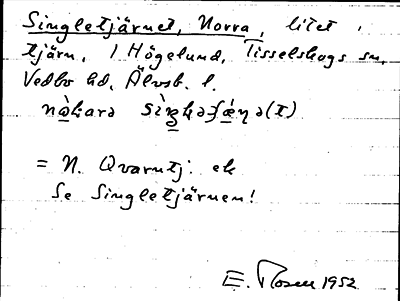 Singletjärnet, Norra, litet
tjärn, i Högelund, Tisselskogs sn,
Vedbo hd, Älvsb. l.
= N. Qvarntj. ek
Se Singletjärnen!
E. Rosen 1952